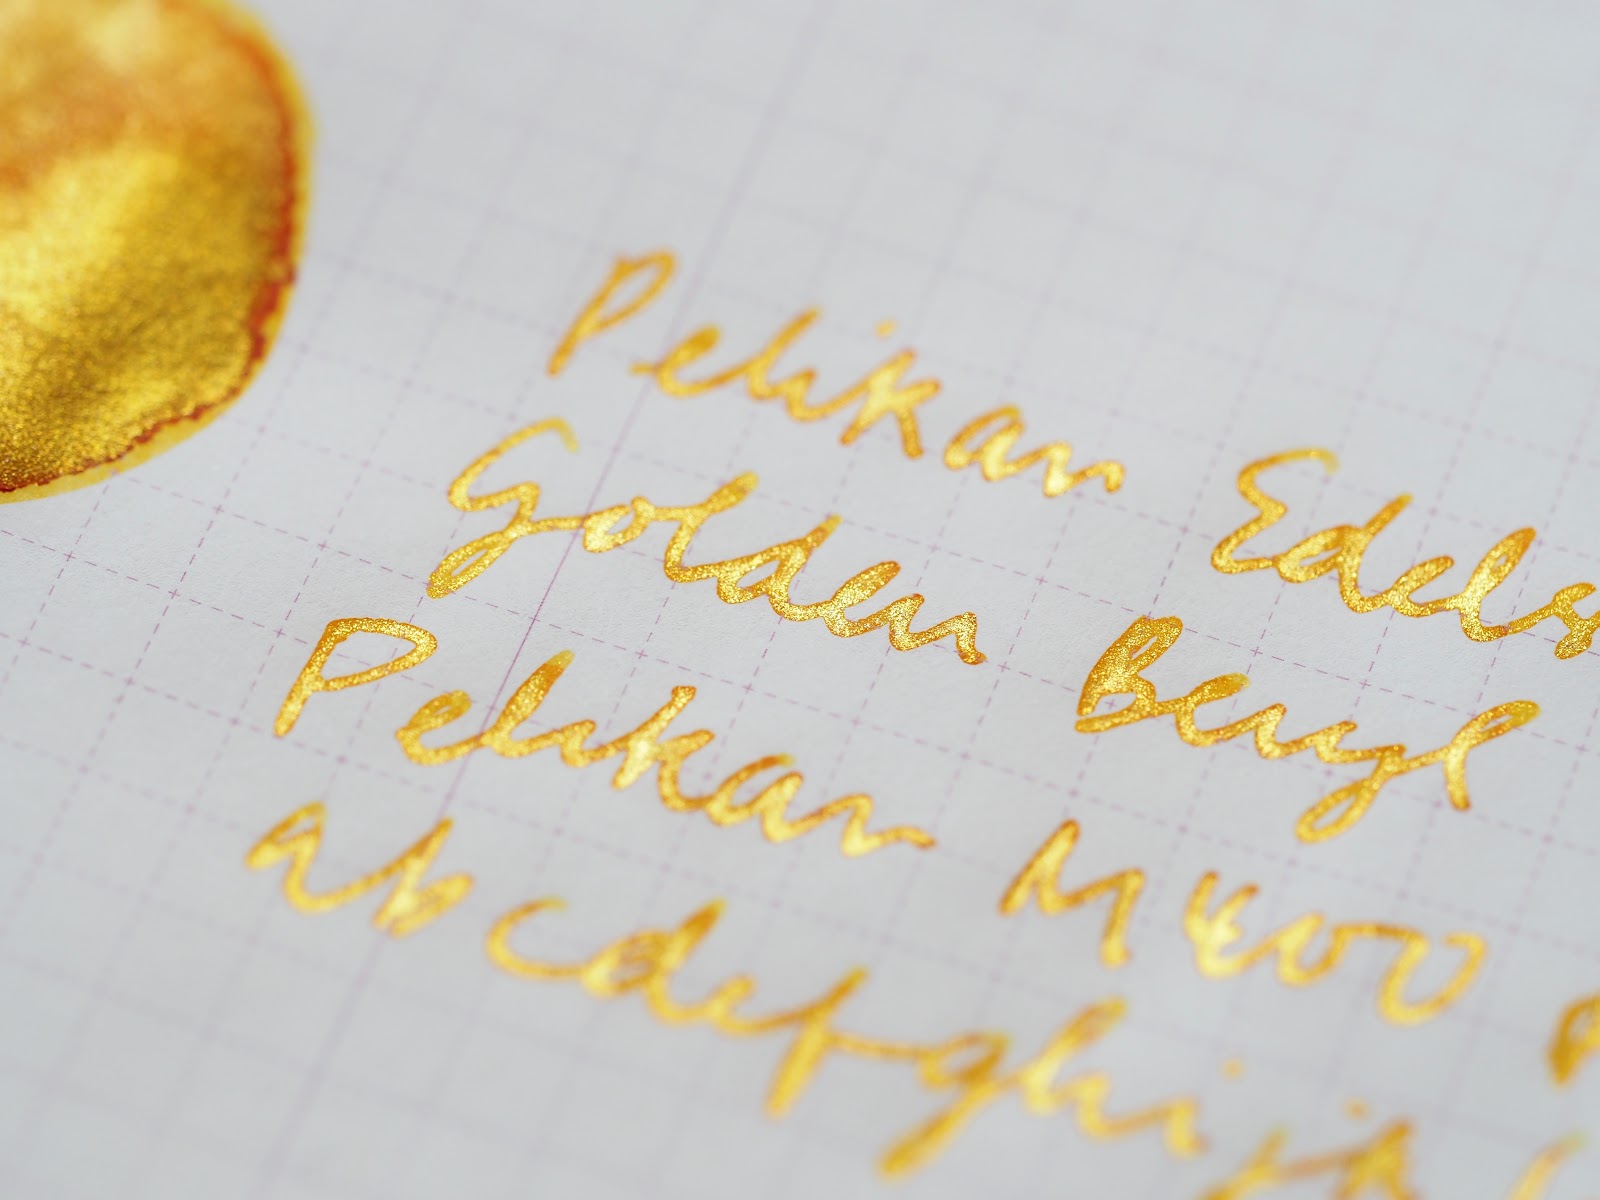 Pelikan Edels
Golden Beryl
Pelikan M800
abcdefghijk